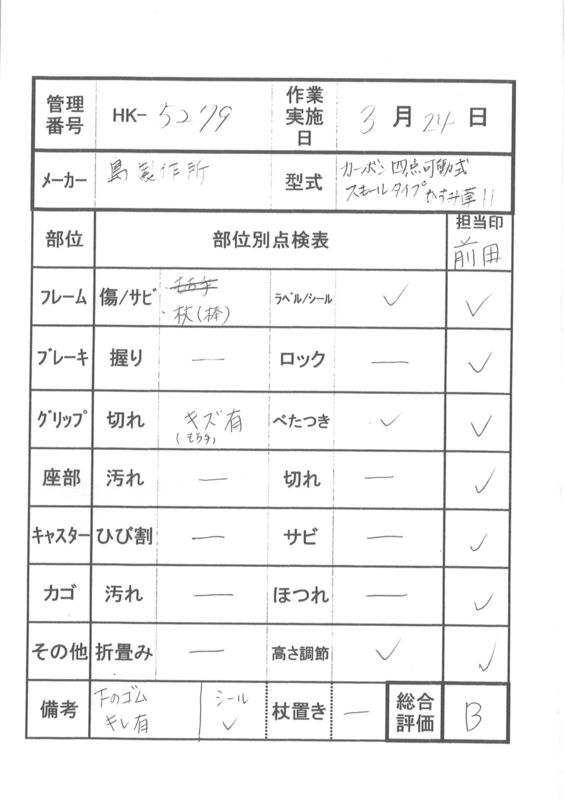 管理番号 HK- 5279 作業実施日 3月24日
メーカー 島製作所 型式 カーボン四点可動式
スモールタイプ かすみ草11
部位 部位別点検表 担当印 前田
フレーム 傷/サビ もち手 ラベル/シール ✓ ✓
・杖(棒)
ブレーキ 握り ― ロック ― ✓
グリップ 切れ キズ有 べたつき ✓ ✓
(もち手)
座部 汚れ ― 切れ ― ✓
キャスター ひび割 ― サビ ― ✓
カゴ 汚れ ― ほつれ ― ✓
その他 折畳み ― 高さ調節 ✓ ✓
備考 下のゴム シール 杖置き ― 総合評価 B
キレ有 ✓